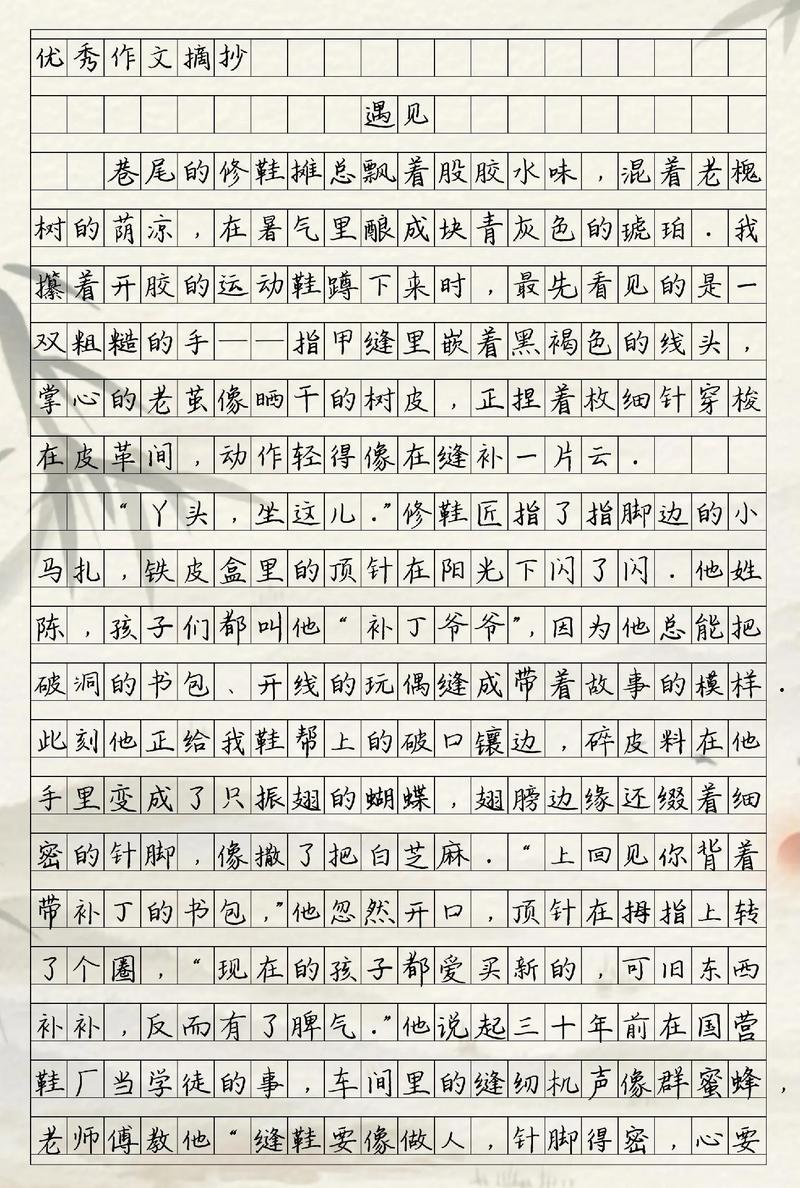 优秀作文摘抄
遇见
巷尾的修鞋摊总飘着股胶水味，混着老槐
树的荫凉，在暑气里酿成块青灰色的琥珀．我
攥着开胶的运动鞋蹲下来时，最先看见的是一
双粗糙的手——指甲缝里嵌着黑褐色的线头，
掌心的老茧像晒干的树皮，正捏着枚细针穿梭
在皮革间，动作轻得像在缝补一片云．
“丫头，坐这儿．”修鞋匠指了指脚边的小
马扎，铁皮盒里的顶针在阳光下闪了闪．他姓
陈，孩子们都叫他“补丁爷爷”，因为他总能把
破洞的书包、开线的玩偶缝成带着故事的模样．
此刻他正给我鞋帮上的破口镶边，碎皮料在他
手里变成了只振翅的蝴蝶，翅膀边缘还缀着细
密的针脚，像撒了把白芝麻．“上回见你背着
带补丁的书包，”他忽然开口，顶针在拇指上转
了个圈，“现在的孩子都爱买新的，可旧东西
补补，反而有了脾气．”他说起三十年前在国营
鞋厂当学徒的事，车间里的缝纫机声像群蜜蜂，
老师傅教他“缝鞋要像做人，针脚得密，心要